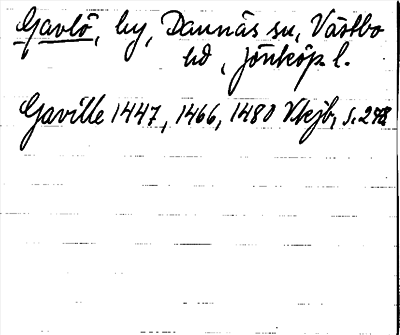 Gavlö, by, Dannäs sn, Västbo
hd, Jönköp l.
Gaville 1447, 1466, 1480 Vkjb, s. 298